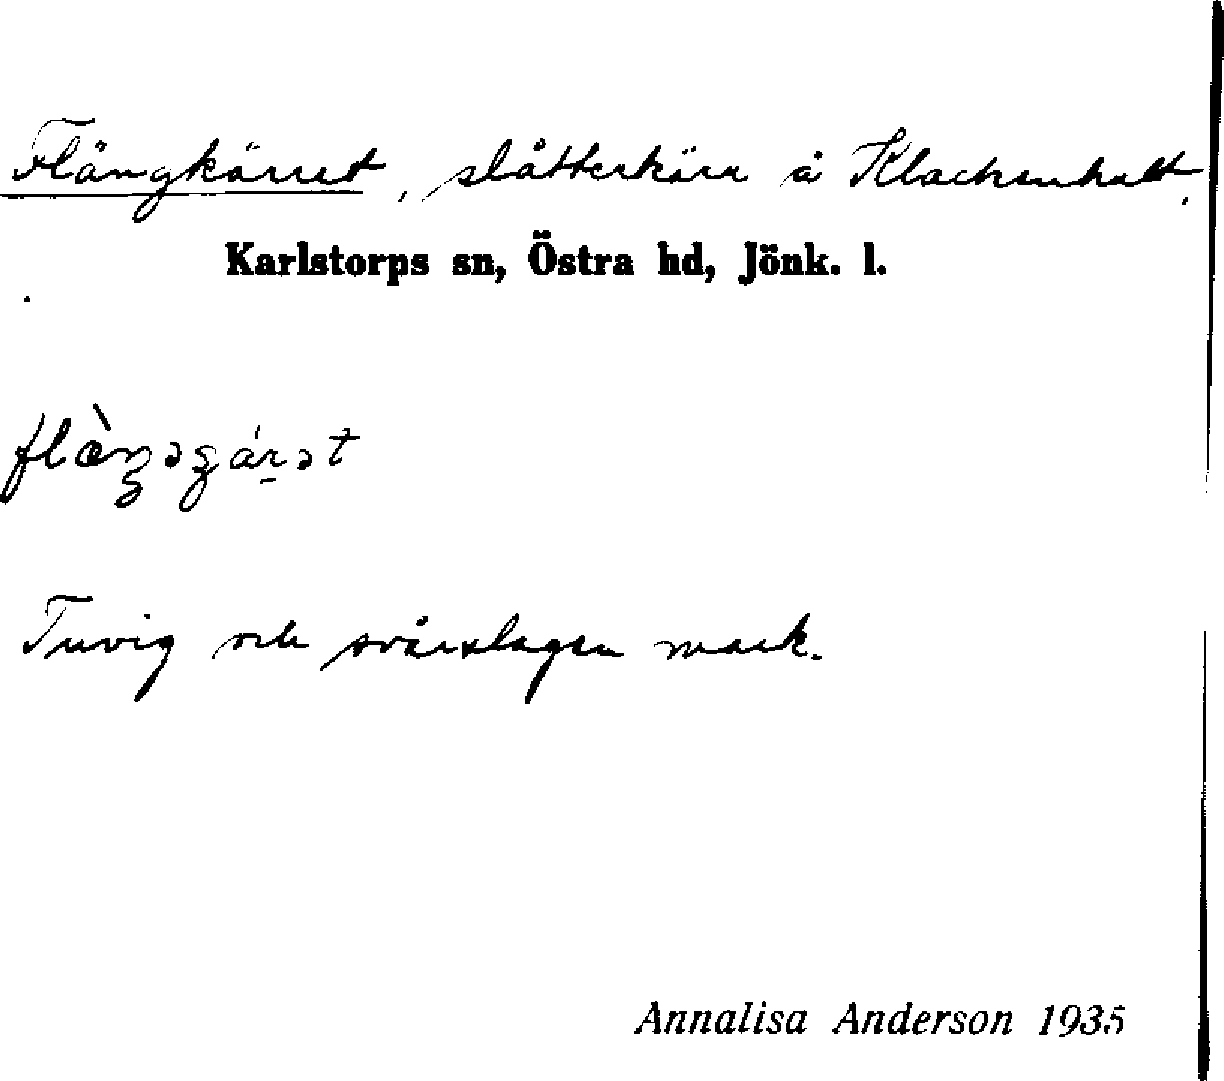 Flängkärret, slåtterkärr å Klackenhult.
Karlstorps sn, Östra hd, Jönk. l.
Tuvig och svårslagen mark.
Annalisa Anderson 1935